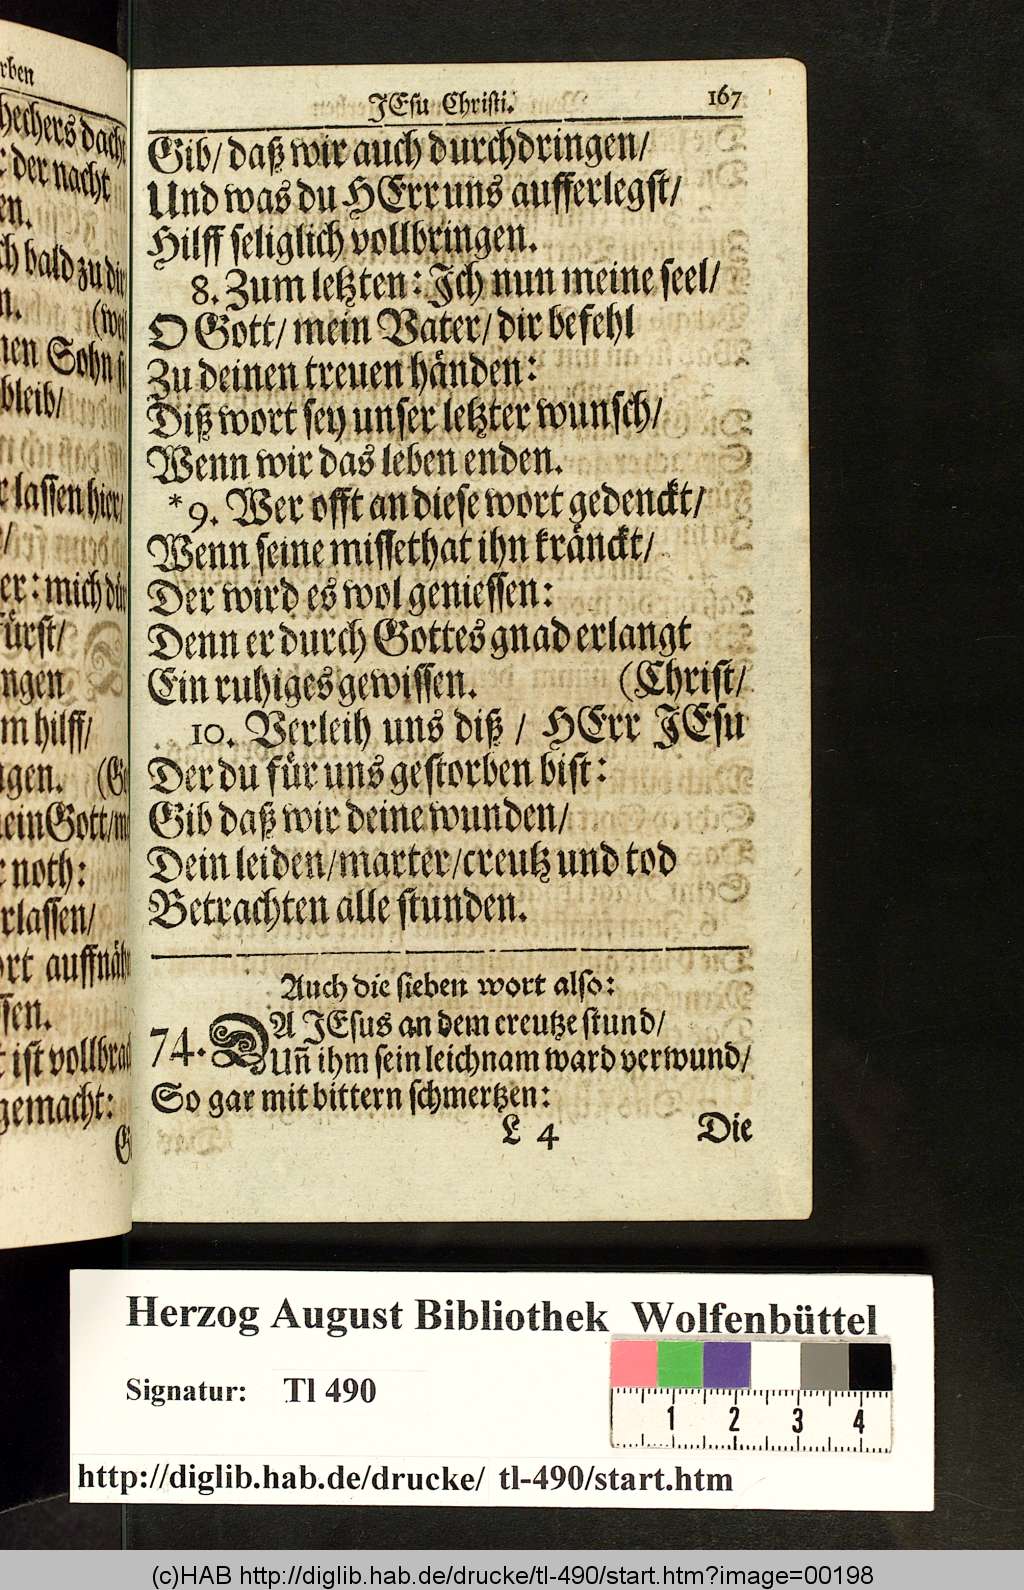 rben
hechers dach
r der nacht
en.
ch bald zu dir
n. (weil
nen Sohn
bleib/
r lassen hier/
er: mich
fürst/
ngen
m hilff/
ngen.
ein Gott/
r noth:
rlassen/
ort auffnäh
ssen.
t ist vollbrac
gemacht:
JEsu Christi. 167
Gib/ daß wir auch durchdringen/
Und was du HErr uns aufferlegst/
Hilff seliglich vollbringen.
8. Zum letzten: Ich nun meine seel/
O Gott/ mein Vater/ dir befehl
Zu deinen treuen händen:
Diß wort sey unser letzter wunsch/
Wenn wir das leben enden.
*9. Wer offt an diese wort gedenckt/
Wenn seine missethat ihn kränckt/
Der wird es wol geniessen:
Denn er durch Gottes gnad erlangt
Ein ruhiges gewissen. (Christ/
10. Verleih uns diß / HErr JEsu
Der du für uns gestorben bist:
Gib daß wir deine wunden/
Dein leiden/marter/creutz und tod
Betrachten alle stunden.
Auch die sieben wort also:
74. DA JEsus an dem creutze stund/
Uñ ihm sein leichnam ward verwund/
So gar mit bittern schmertzen:
L 4 Die
Herzog August Bibliothek Wolfenbüttel
Signatur: Tl 490
1 2 3 4
http://diglib.hab.de/drucke/ tl-490/start.htm
(c)HAB http://diglib.hab.de/drucke/tl-490/start.htm?image=00198